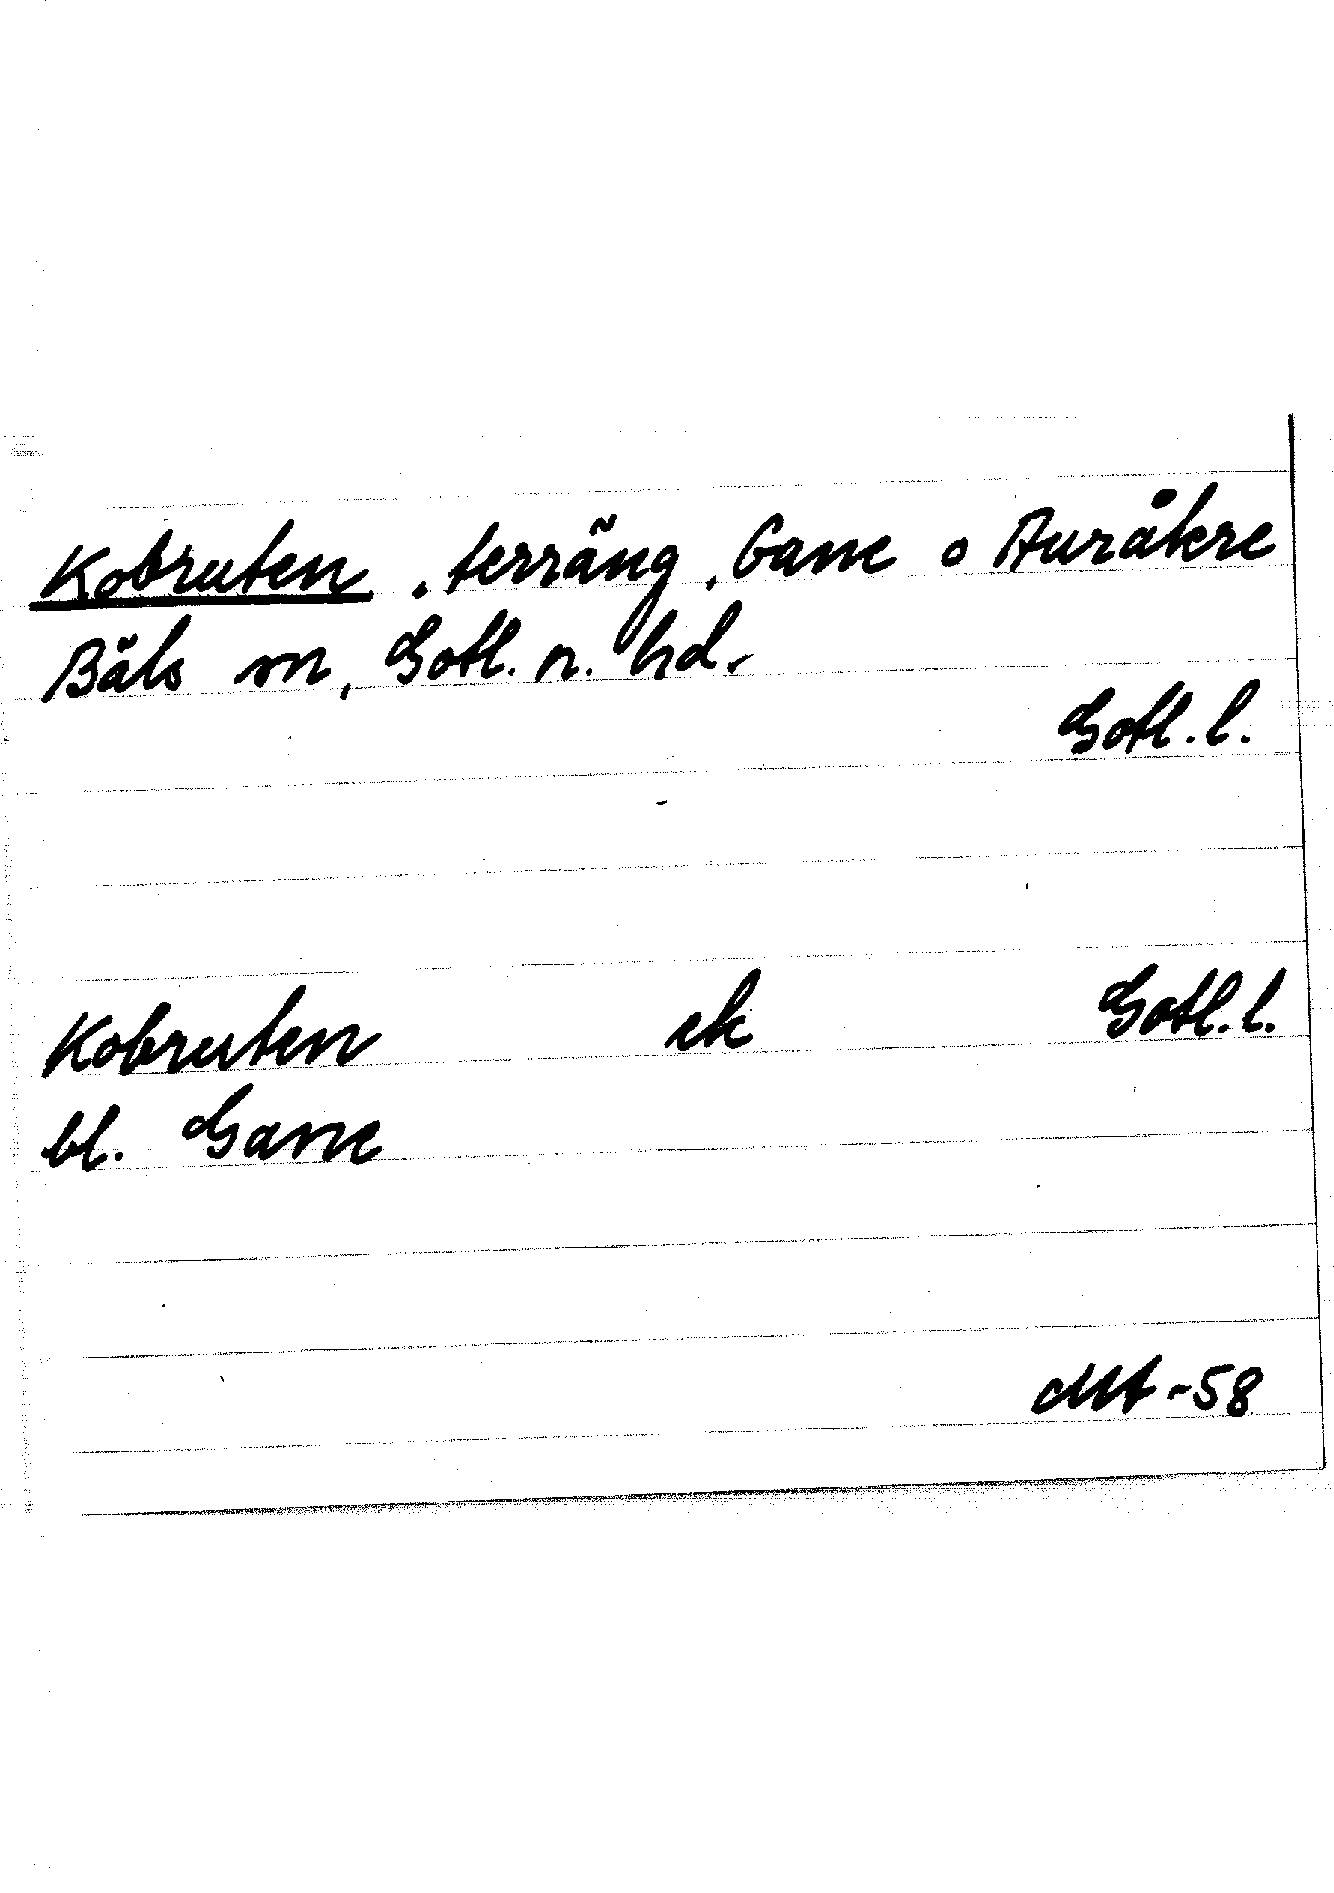 Kobruten, terräng, Gane o Auråkre
Bäls sn, Gotl. n. hd.
Gotl. l.
Kobruten ek Gotl. l.
bl. Gane
MA -58